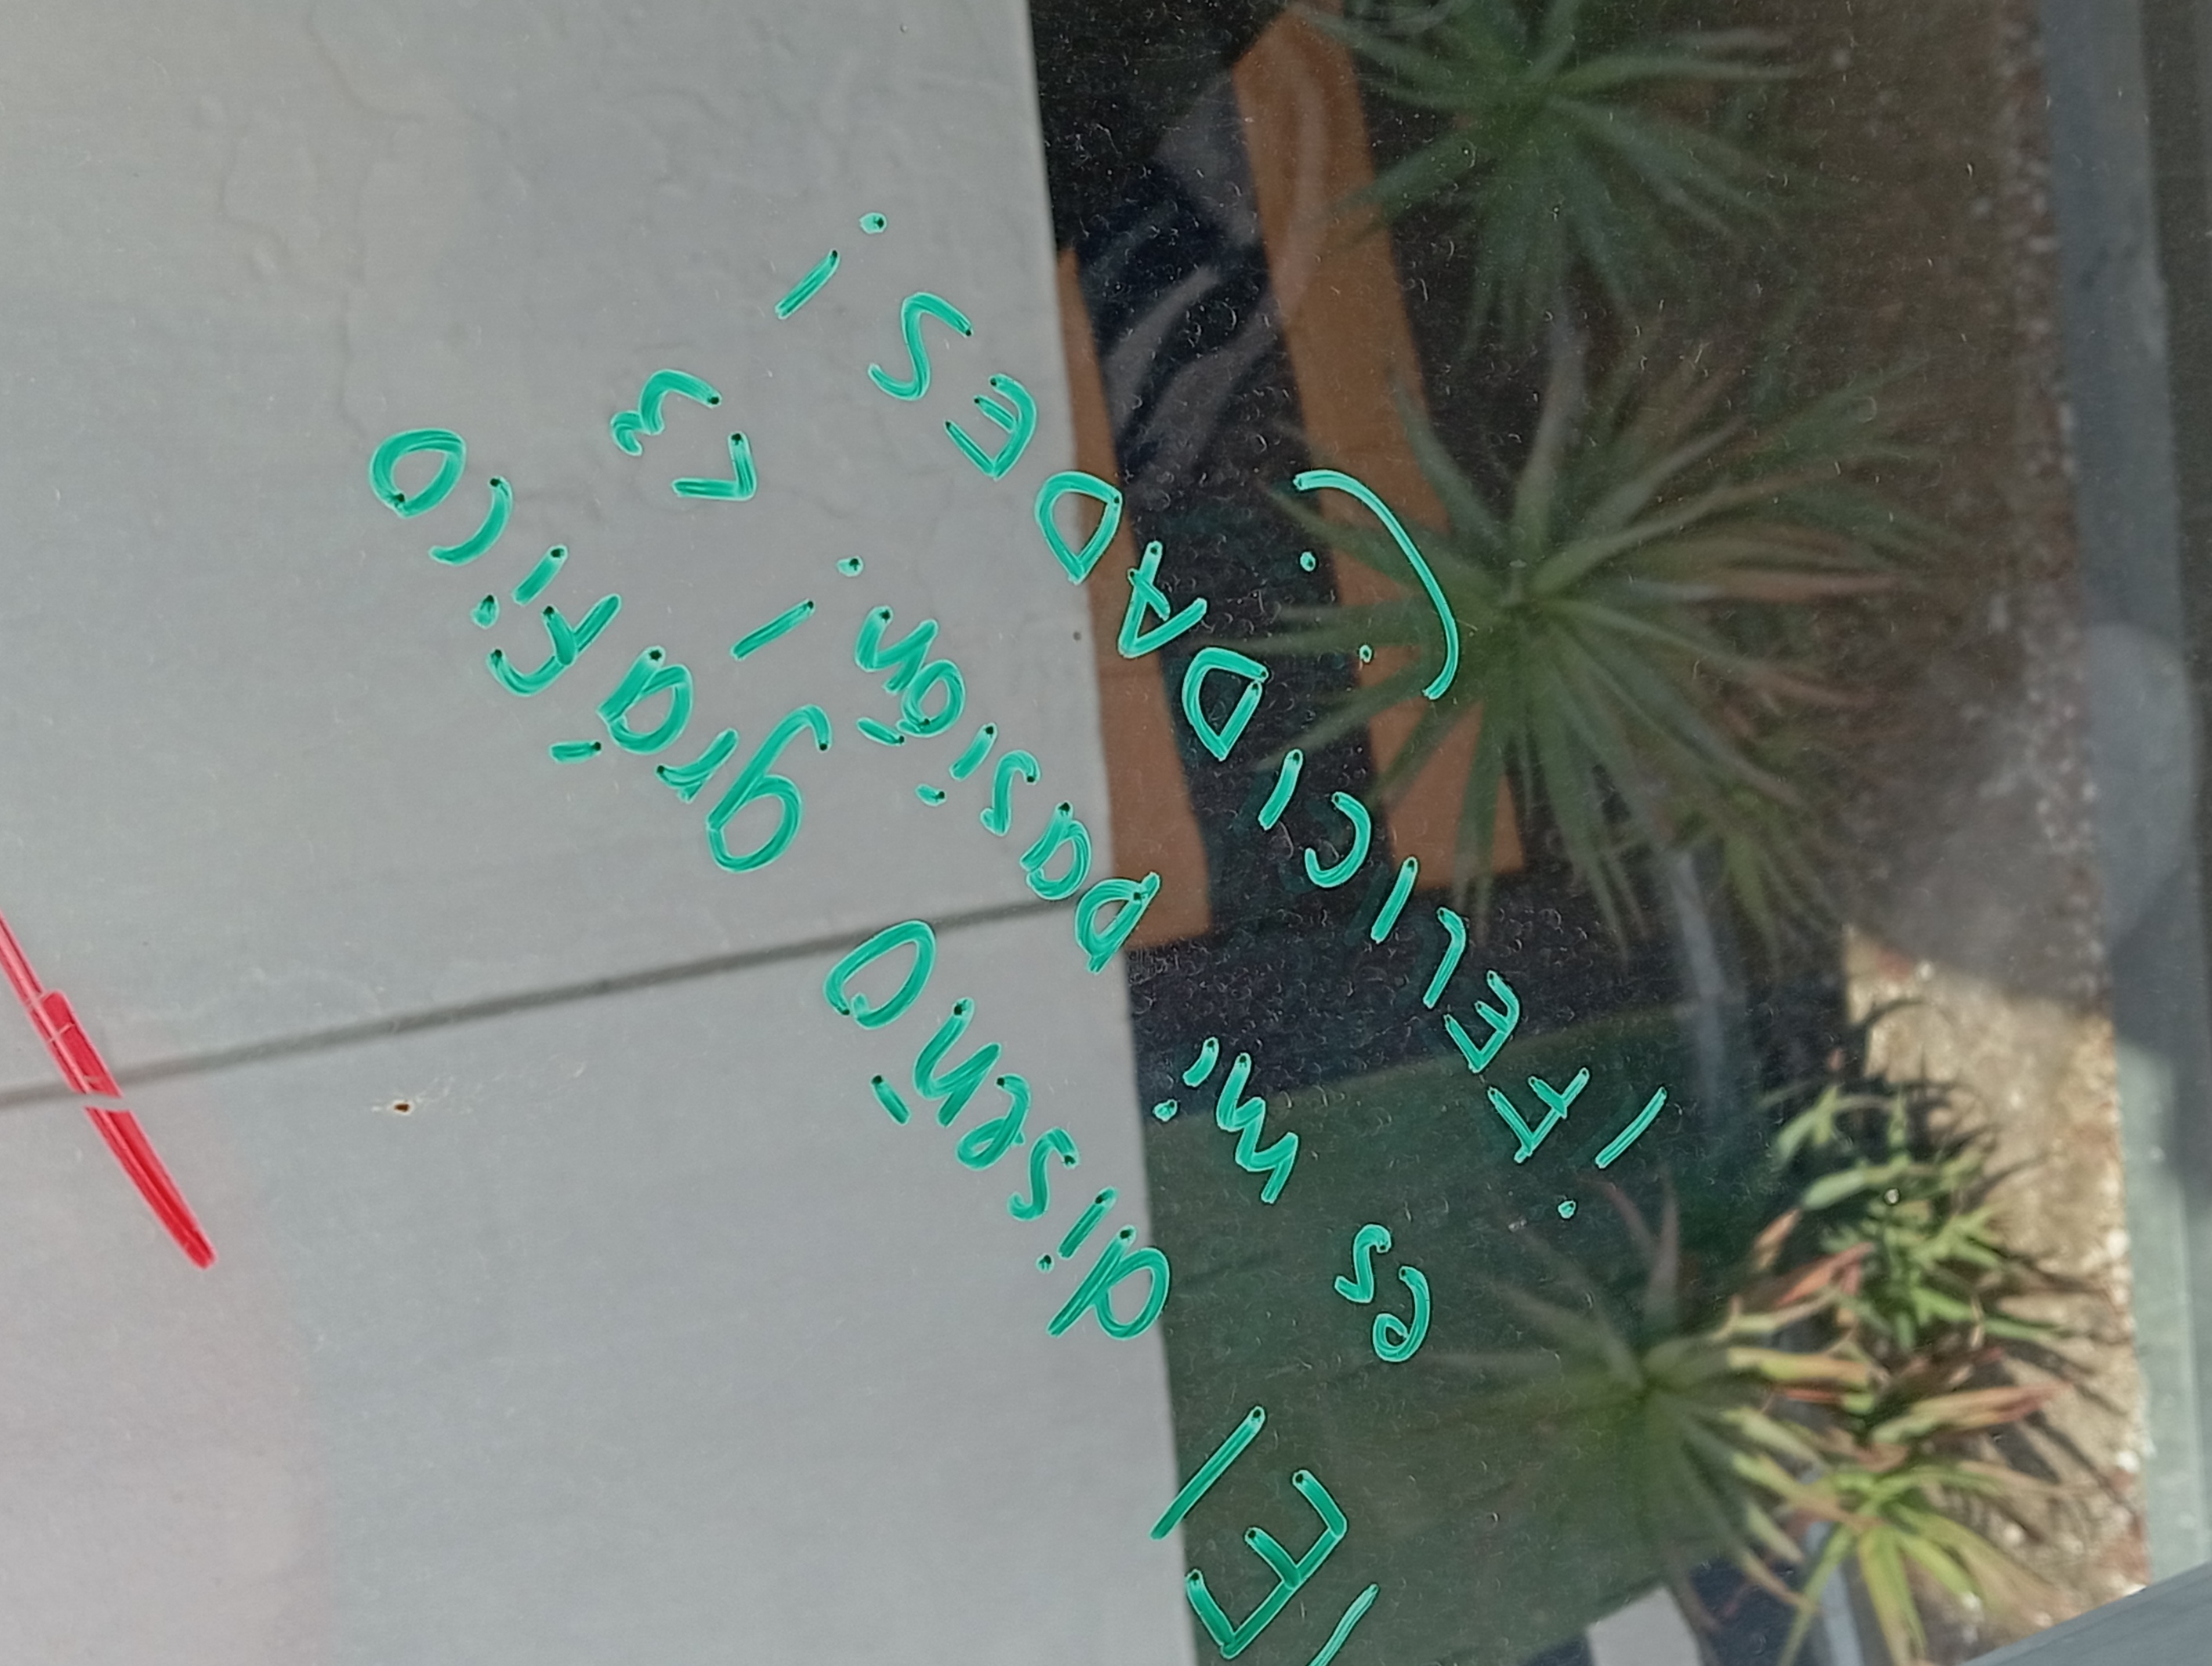 ¡El diseño gráfico
es mi pasión! <3
¡FELICIDADES!
:)